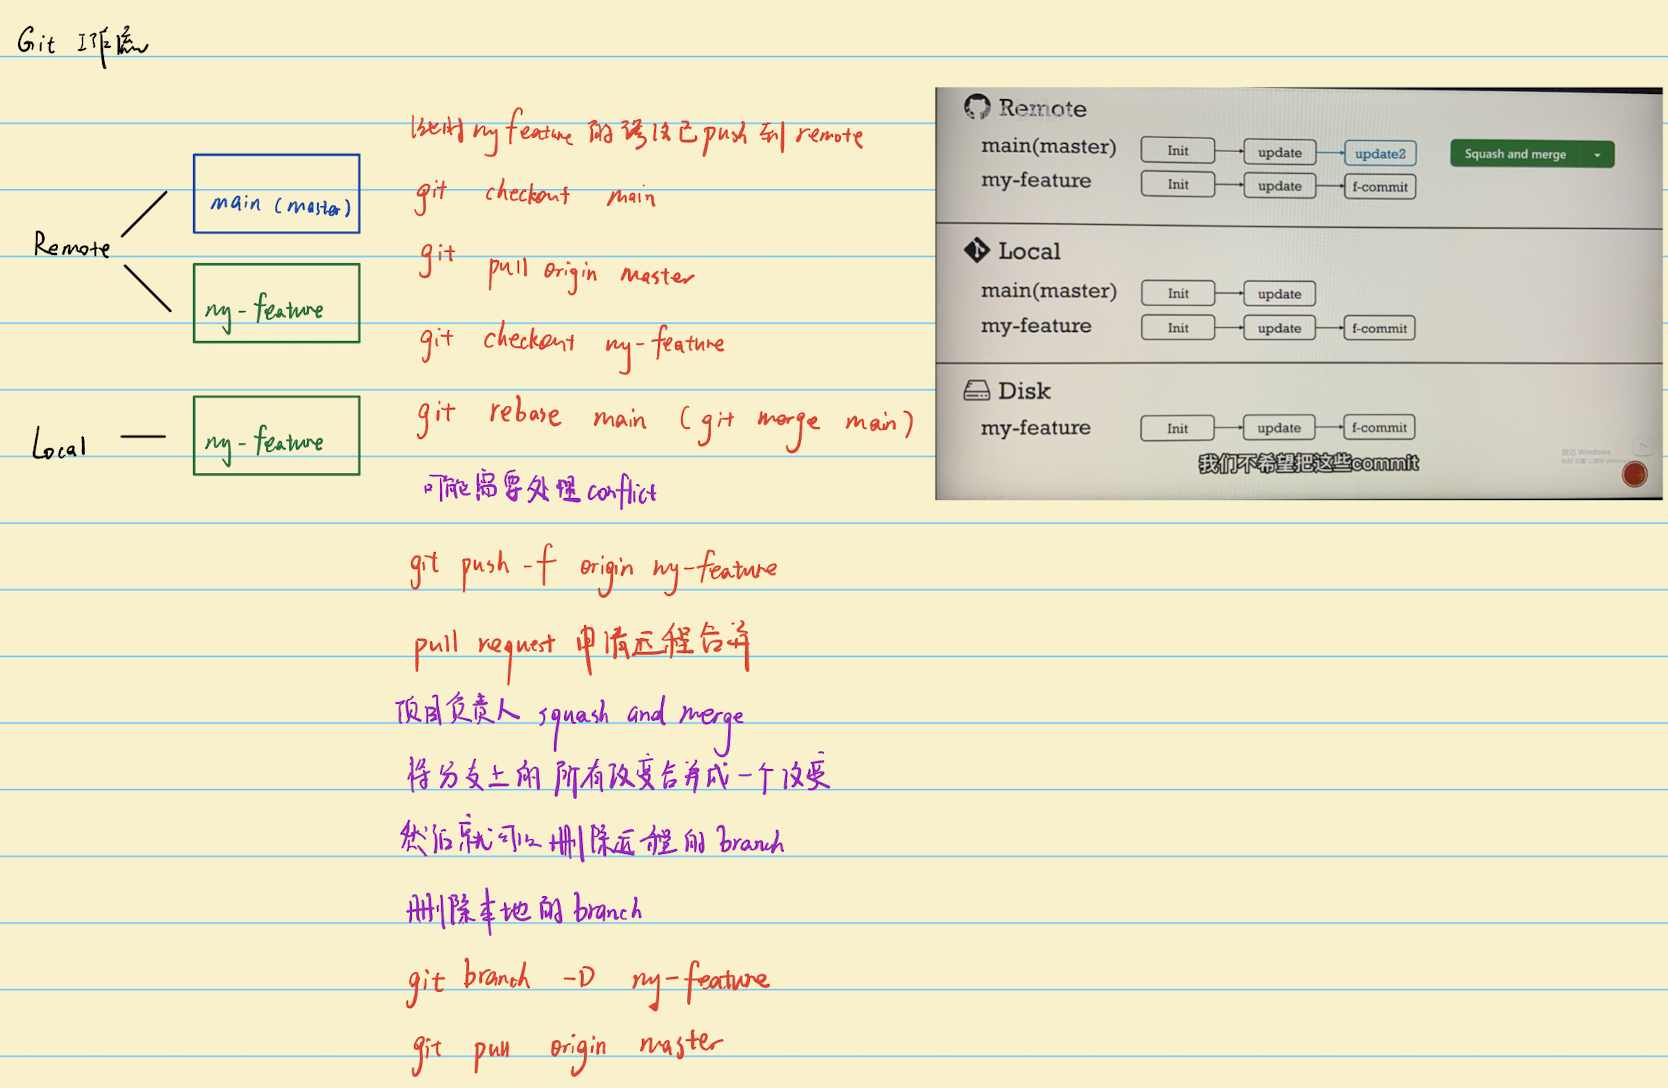 Git 工作流
Remote
main (master)
my-feature
Local
my-feature
此时 my feature 的修改已 push 到 remote
git checkout main
git pull origin master
git checkout my-feature
git rebase main (git merge main)
可能需要处理 conflict
git push -f origin my-feature
pull request 申请远程合并
项目负责人 squash and merge
将分支上的所有改变合并成一个改变
然后就可以删除远程的 branch
删除本地的 branch
git branch -D my-feature
git pull origin master
Remote
main(master) Init update update2 Squash and merge
my-feature Init update f-commit
Local
main(master) Init update
my-feature Init update f-commit
Disk
my-feature Init update f-commit
我们不希望把这些commit
激活 Windows